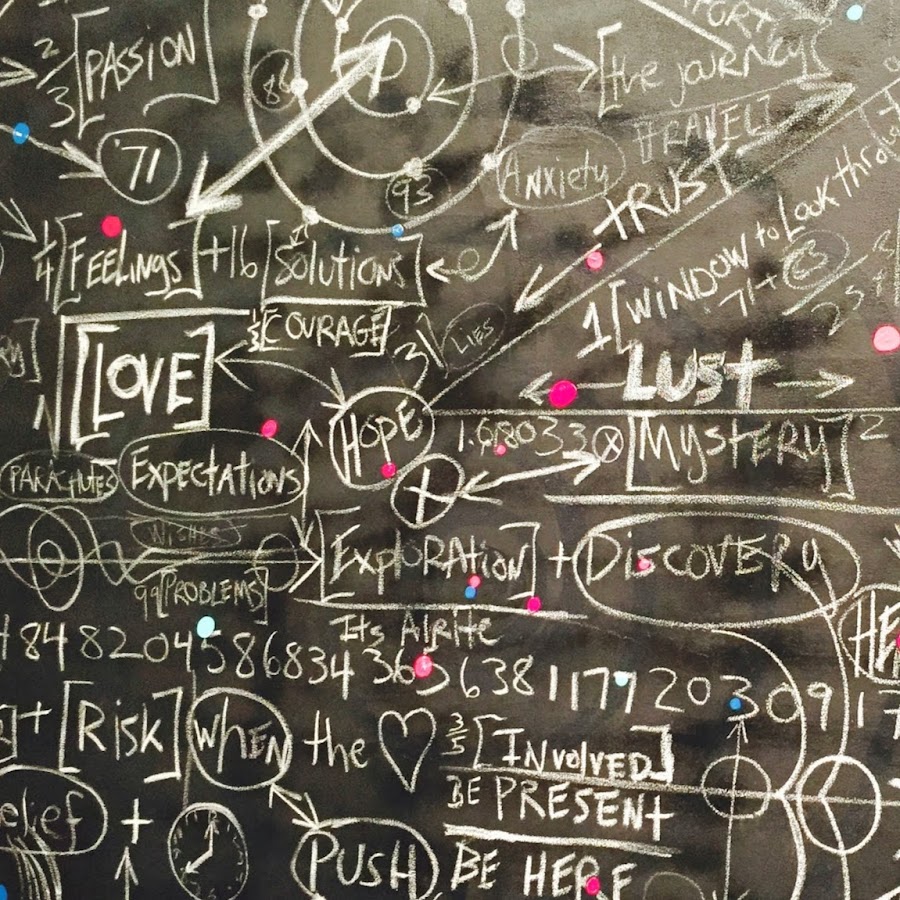 2/3 [PASSION]
86
[the journey]
[TRAVEL]
'71
93
Anxiety
TRUST
1/4 [FEELINGS] +16 [SOLUTIONS]
1[WINDOW to Look through
71+
[LOVE]
1/3 [COURAGE]
3√
LIES
LUST
HOPE
1.68033 ⊗ [MYSTERY]²
PARACHUTES
EXPECTATIONS
X
WISHES
[EXPLORATION] + DISCOVERY
99[PROBLEMS]
Its Alrite
4848204586834 365638 1177203091
+ [Risk] WHEN the ♡ 3/5 [INVOLVED]
BE PRESENT
+
PUSH BE HERE